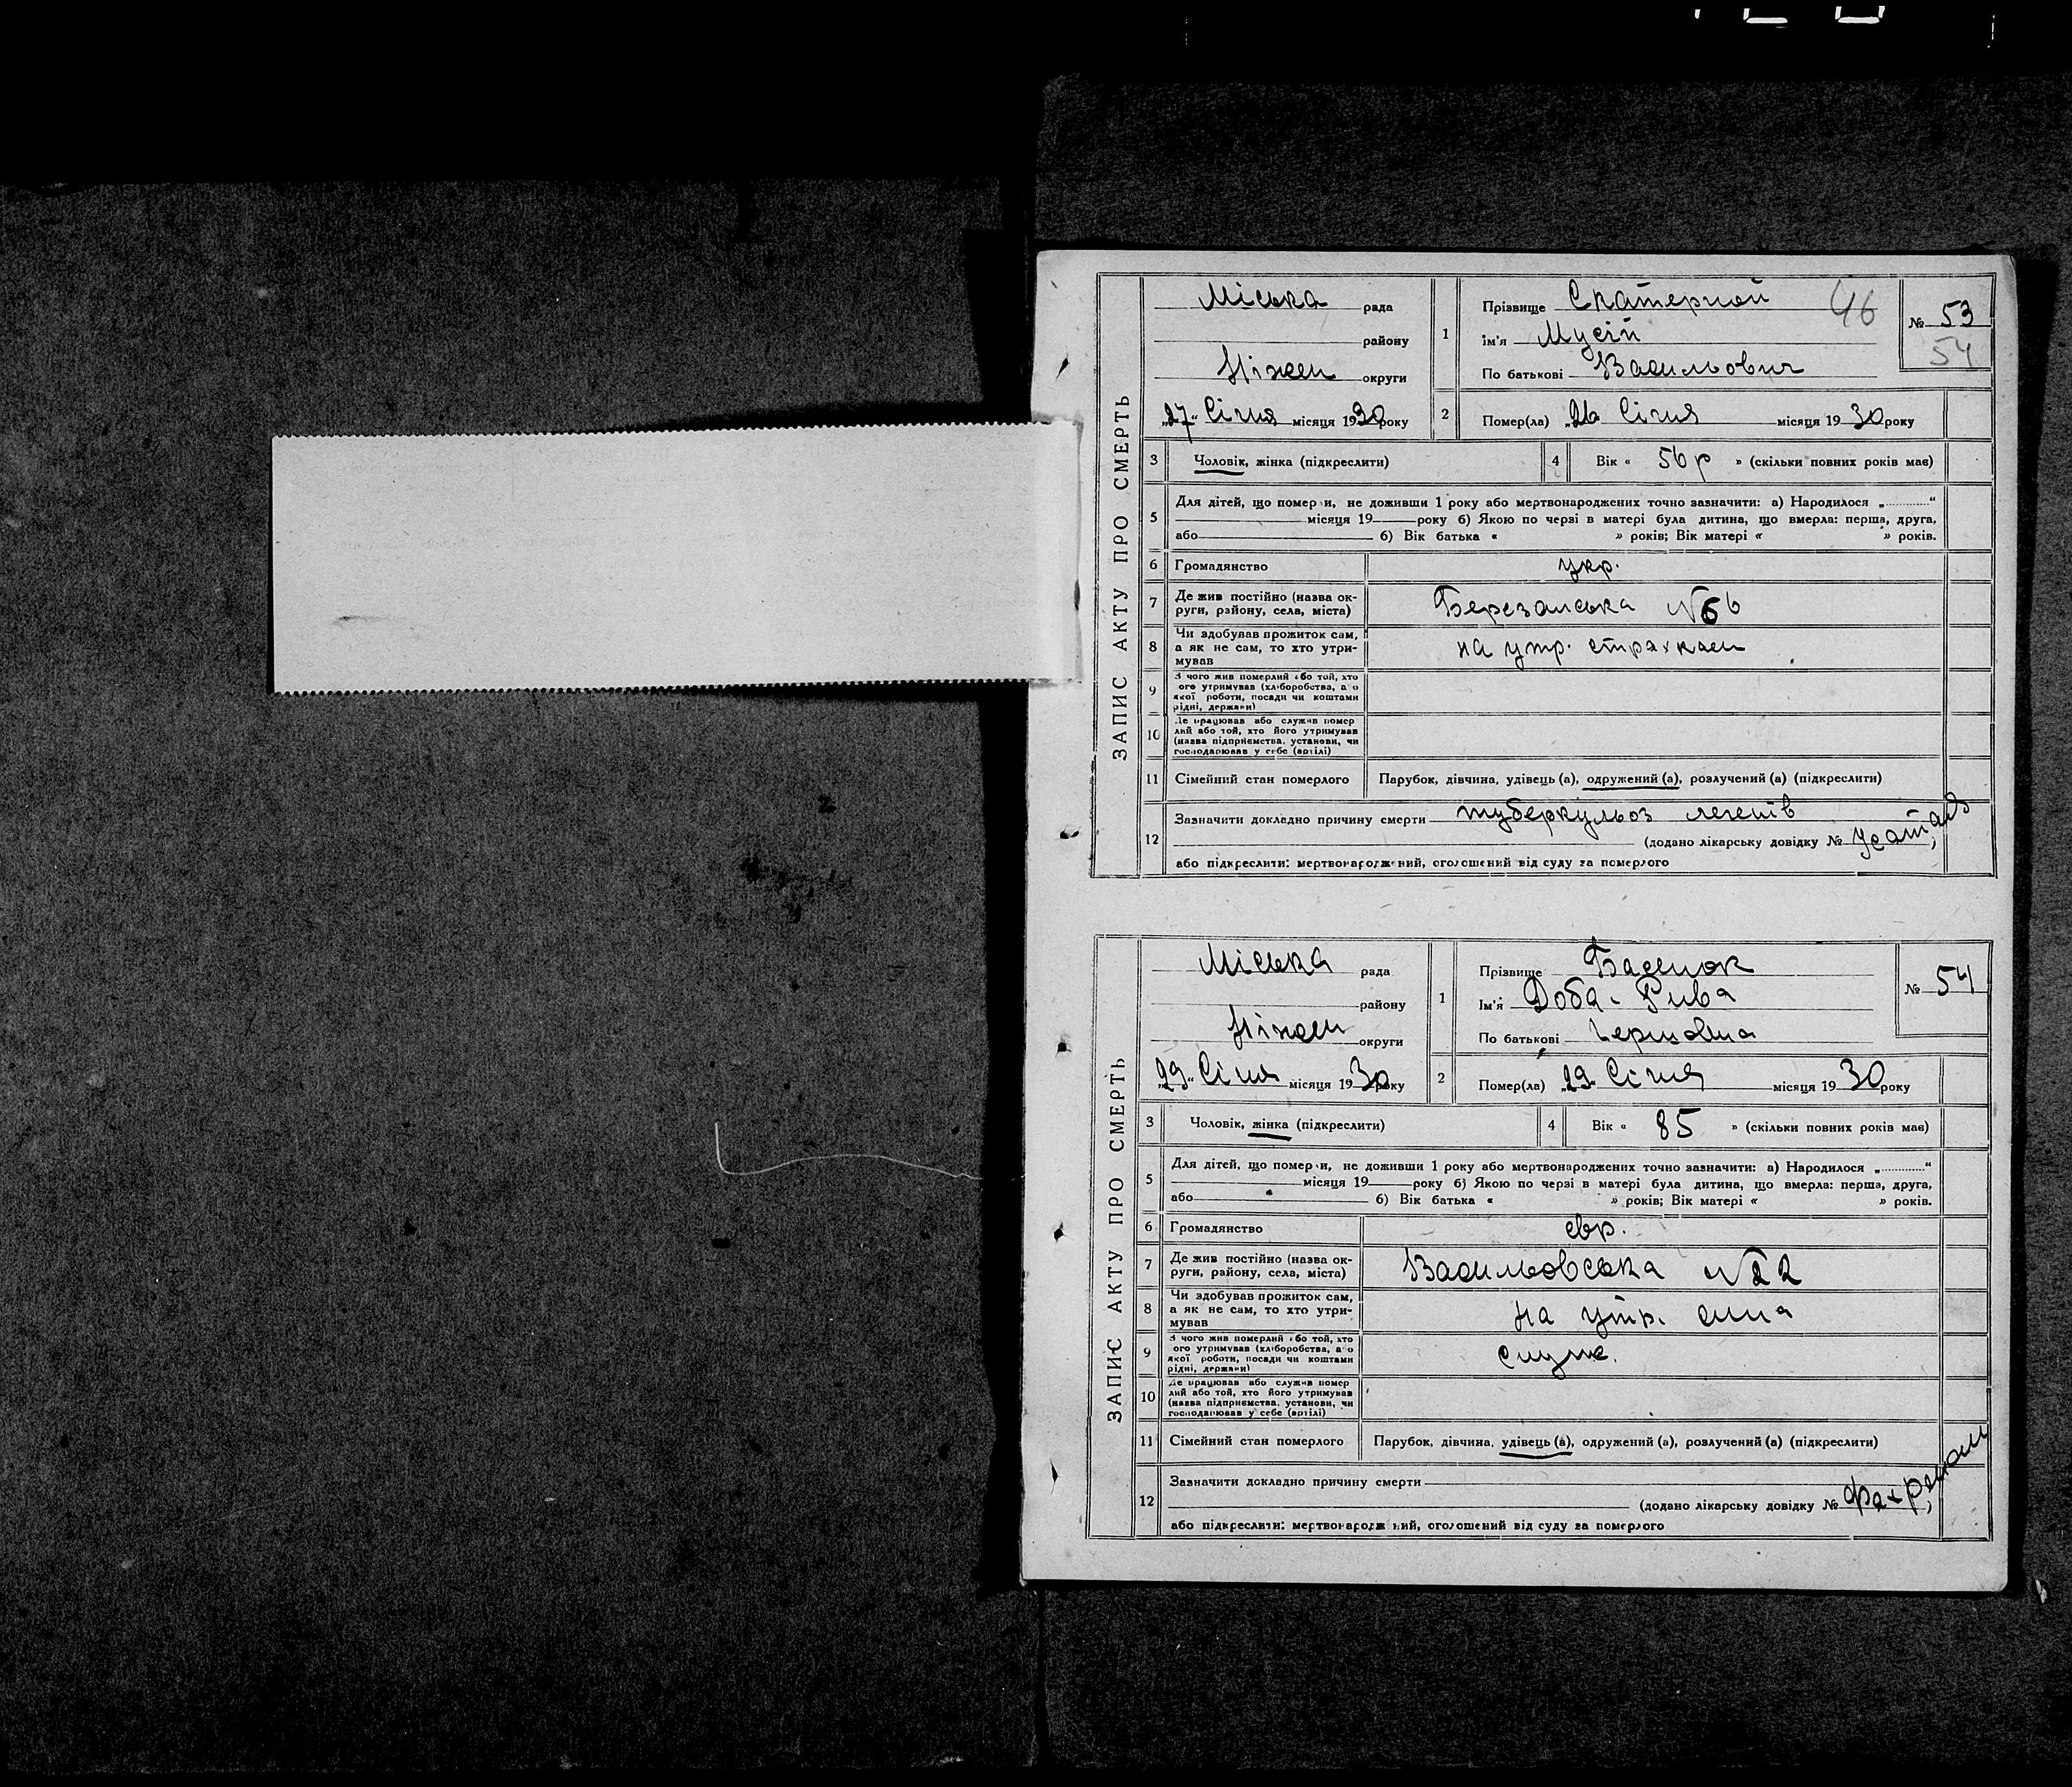 ЗАПИС АКТУ ПРО СМЕРТЬ
Міська рада
району
Ніжен округи
„27“ Січня місяця 1930 року
1
Прізвище Скатерной
Ім'я Мусій
По батькові Васильович
46
№ 53
54
2
Помер(ла) „26 Січня місяця 1930 року
3 Чоловік, жінка (підкреслити)
4 Вік « 56 р » (скільки повних років має)
5 Для дітей, що померли, не доживши 1 року або мертвонароджених точно зазначити: а) Народилося „..........“
місяця 19 року б) Якою по черзі в матері була дитина, що вмерла: перша, друга,
або б) Вік батька « » років; Вік матері « » років.
6 Громадянство укр.
7 Де жив постійно (назва ок-
руги, району, села, міста) Березанська №
8 Чи здобував прожиток сам,
а як не сам, то хто утри-
мував на утр. страхкаси
9 З чого жив померлий або той, хто
ого утримував (хліборобства, а о
якої роботи, посади чи коштами
рідні, держави)
10 Де працював або служив помер
лий або той, хто його утримував
(назва підприємства, установи, чи
господарював у себе (артілі)
11 Сімейний стан померлого Парубок, дівчина, удівець (а), одружений (а), розлучений (а) (підкреслити)
12 Зазначити докладно причину смерти туберкульоз легенів
(додано лікарську довідку №
або підкреслити: мертвонароджений, оголошений від суду за померлого
ЗАПИС АКТУ ПРО СМЕРТЬ
Міська рада
району
Ніжен округи
„29“ Січня місяця 1930 року
1
Прізвище
Ім'я Доба-Рива
По батькові
№ 54
2
Помер(ла) „29 Січня місяця 1930 року
3 Чоловік, жінка (підкреслити)
4 Вік « 85 » (скільки повних років має)
5 Для дітей, що померли, не доживши 1 року або мертвонароджених точно зазначити: а) Народилося „..........“
місяця 19 року б) Якою по черзі в матері була дитина, що вмерла: перша, друга,
або б) Вік батька « » років; Вік матері « » років.
6 Громадянство евр.
7 Де жив постійно (назва ок-
руги, району, села, міста) Васильовська № 22
8 Чи здобував прожиток сам,
а як не сам, то хто утри-
мував на утр. сина
9 З чого жив померлий або той, хто
ого утримував (хліборобства, а о
якої роботи, посади чи коштами
рідні, держави) служ.
10 Де працював або служив помер
лий або той, хто його утримував
(назва підприємства, установи, чи
господарював у себе (артілі)
11 Сімейний стан померлого Парубок, дівчина, удівець (а), одружений (а), розлучений (а) (підкреслити)
12 Зазначити докладно причину смерти
(додано лікарську довідку №
або підкреслити: мертвонароджений, оголошений від суду за померлого